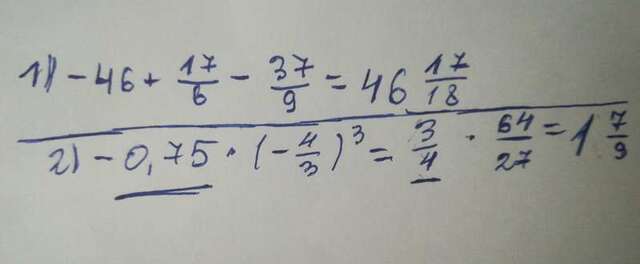 1) - 46 + 17/6 - 37/9 = 46 17/18
2) - 0,75 · (- 4/3)³ = 3/4 · 64/27 = 1 7/9